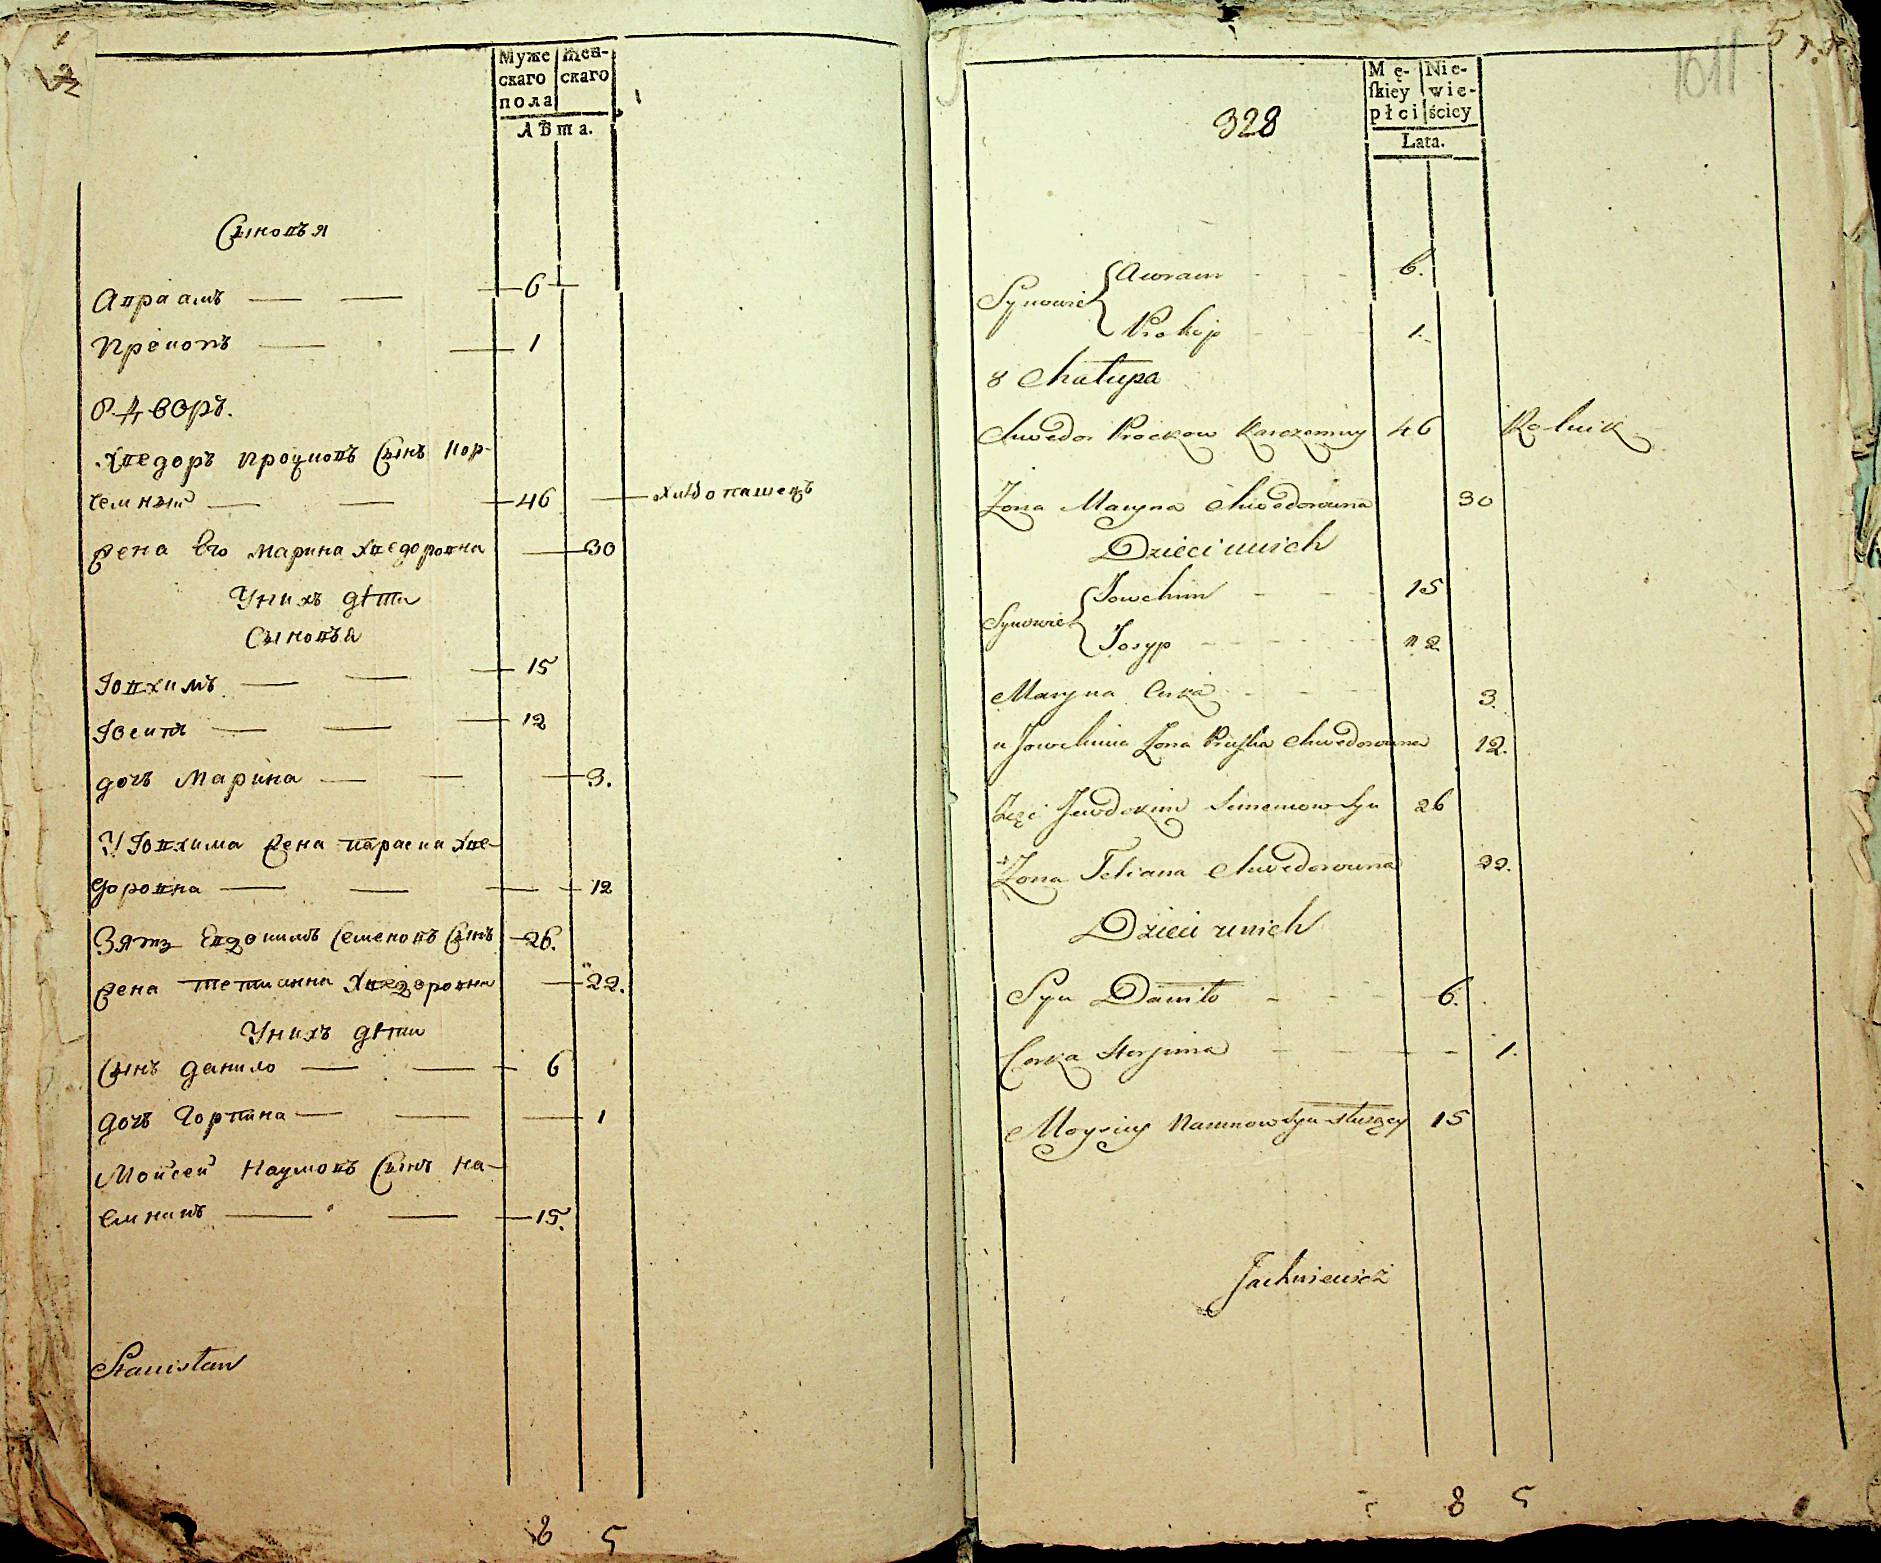 Муже
скаго
пола
Жен-
скаго
Лѣта.
Сыновья
Авраамъ 6
Прокопъ 1
8 Дворъ.
Хведоръ Процковъ Сынъ Кор-
чемный 46 хлѣбопашецъ
Жена Его Марина Хведоровна 30
У нихъ дѣти
Сыновья
Іовхимъ 15
Іосипъ 12
дочь Марина 3.
У Іовхима Жена Параска Хве-
доровна 12
Зять Евдокимъ Семеновъ Сынъ 26.
Жена Тетианна Хведоровна 22.
У нихъ дѣти
Сынъ Данило 6
дочь Горпина 1
Мойсей Наумовъ Сынъ На-
емникъ 15.
Stanisław
8 5
57.
1611
328
Mę-
ſkiey
płci
Nie-
wie-
ściey
Lata.
Synowie Awram 6.
Prokop 1.
8 Chałupa
Chwedor Prockow Karczemny 46 Rolnik
Żona Maryna Chwedorowna 30
Dzieci u nich
Synowie Jowchim 15
Josyp 12
Maryna Curka 3.
u Jowchima Żona Praska Chwedorowna 12.
Zięć Jewdokim Semenow Syn 26
Żona Tetiana Chwedorowna 22.
Dzieci u nich
Syn Daniło 6.
Corka Horpina 1.
Moysiey Naumow Syn służący 15
Jachniewicz
8 5